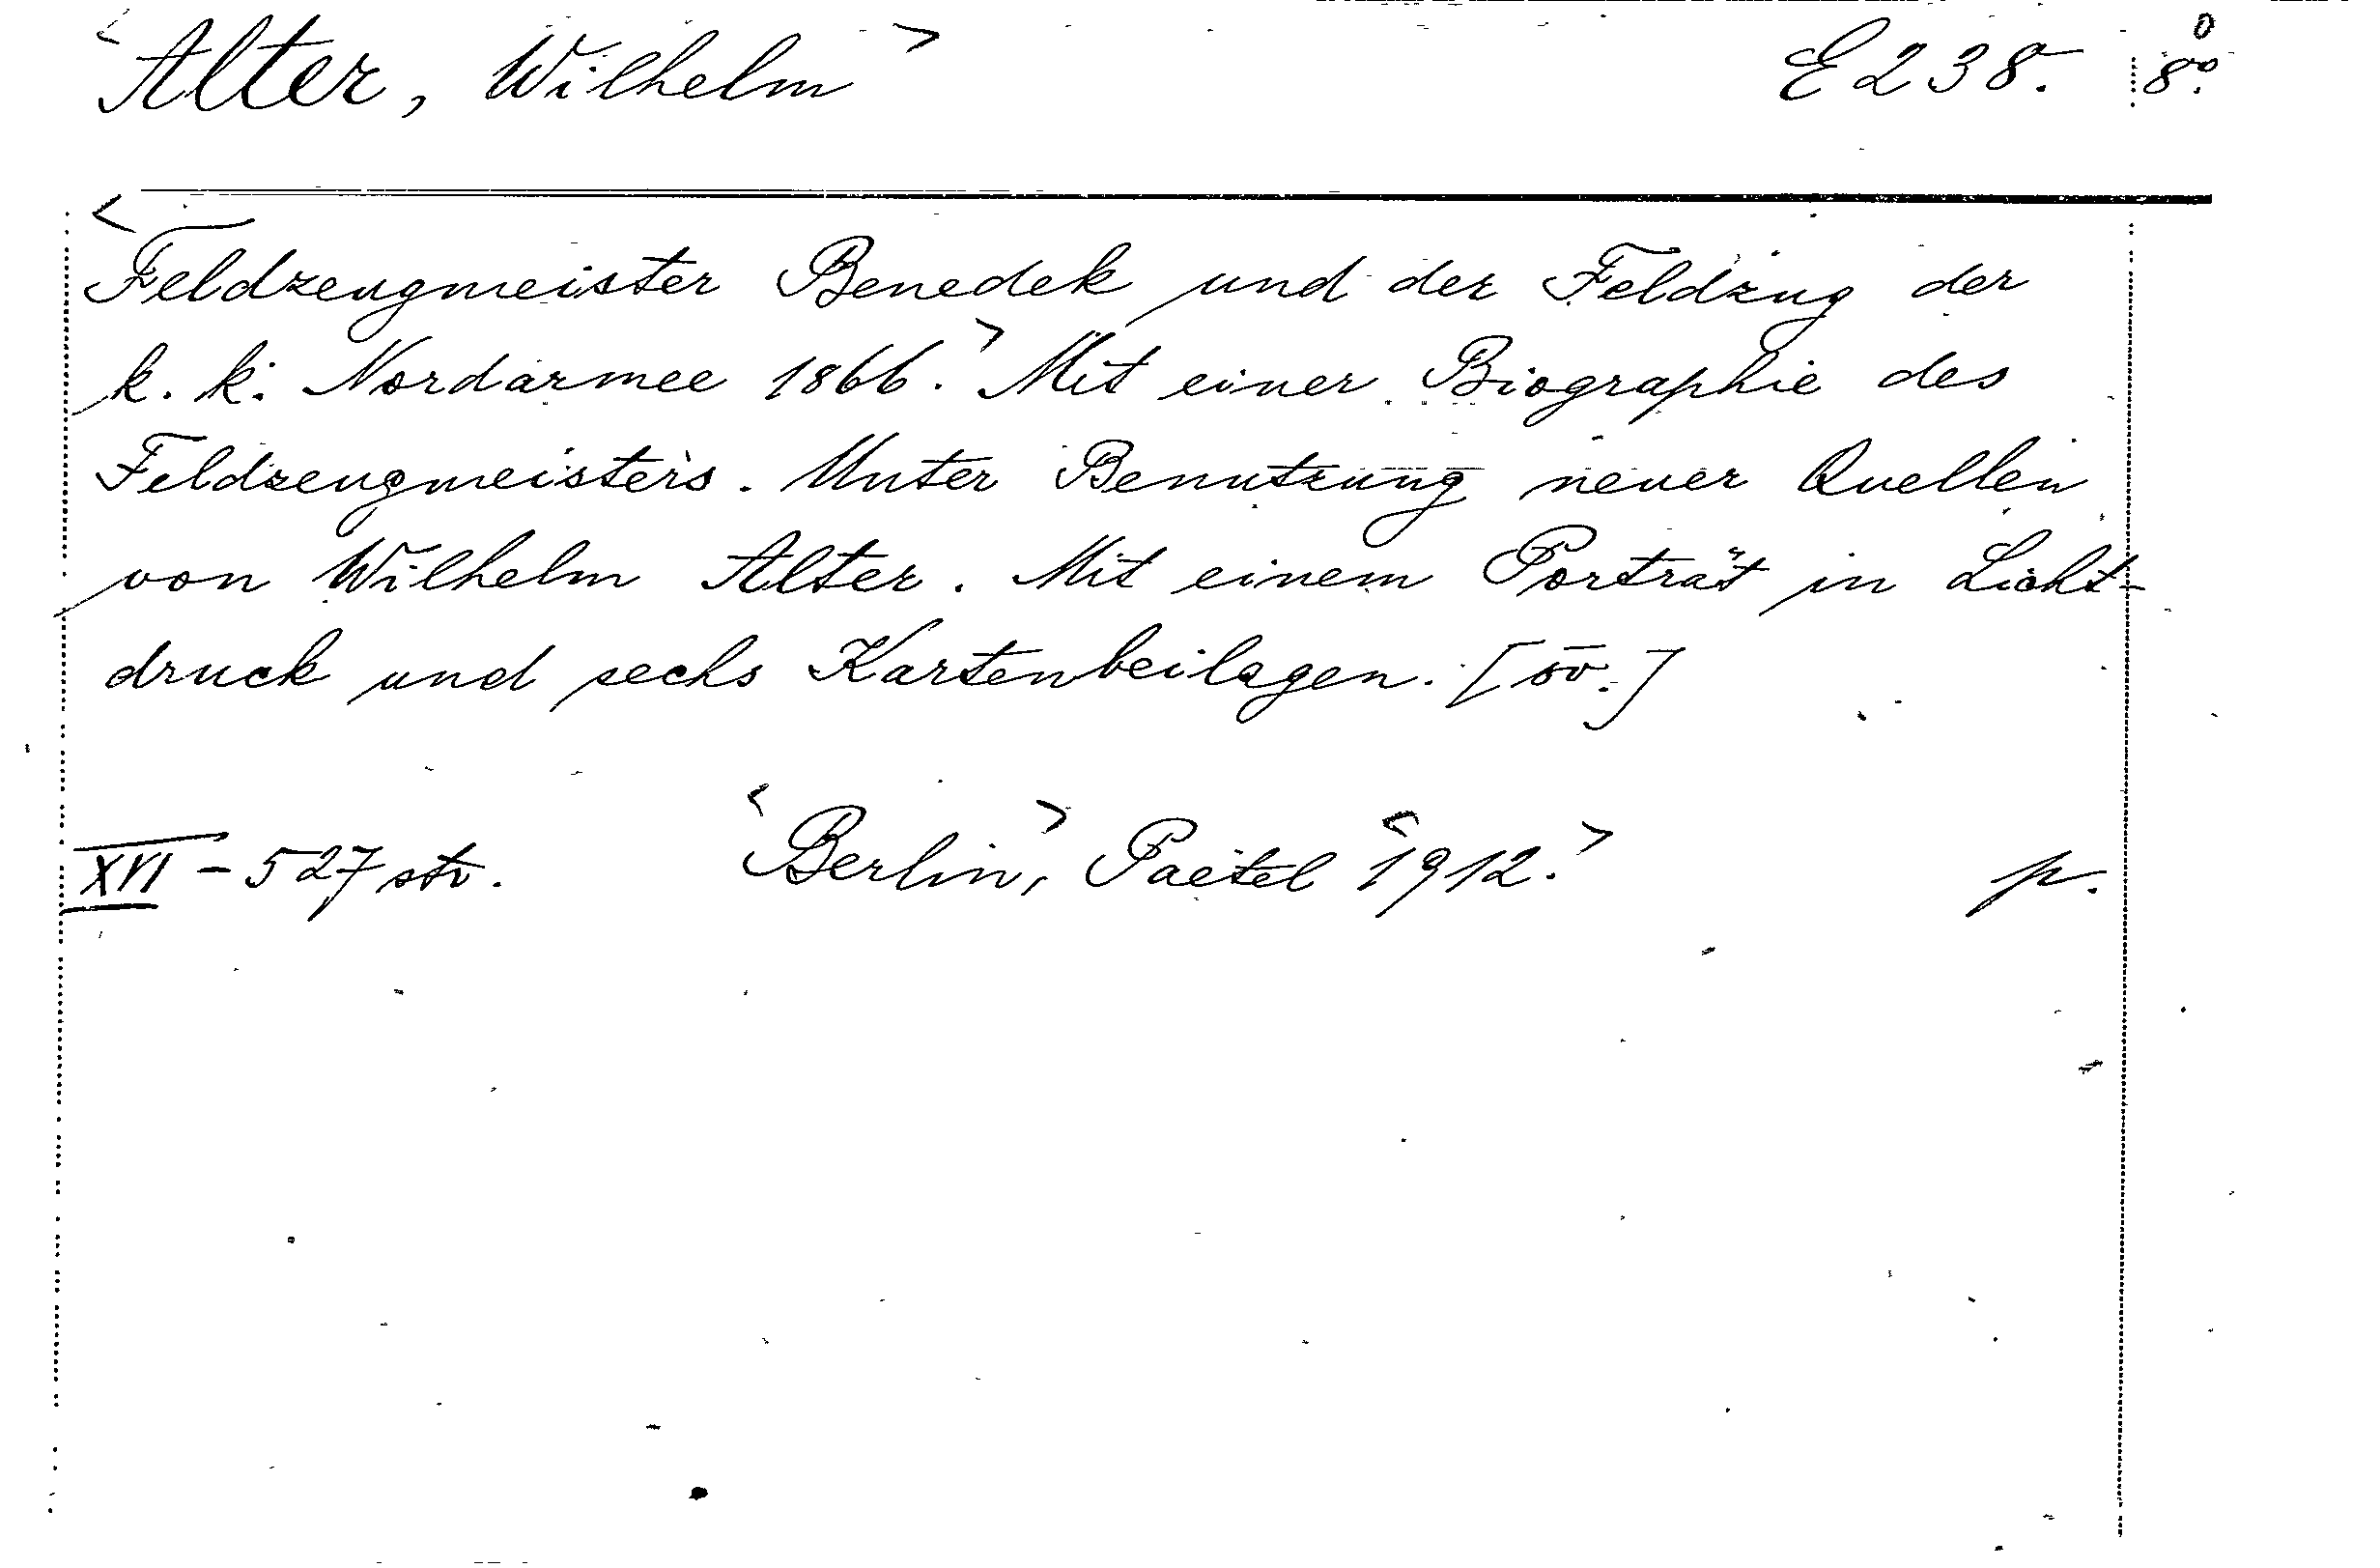 <Alter, Wilhelm> E 238. 8°.
<Feldzeugmeister Benedek und der Feldzug der
k. k. Nordarmee 1866.> Mit einer Biographie des
Feldzeugmeisters. Unter Benutzung neuer Quellen
von Wilhelm Alter. Mit einem Porträt in Licht-
druck und sechs Kartenbeilagen.
XVI - 527 str. <Berlin,> Paetel <1912.> p.